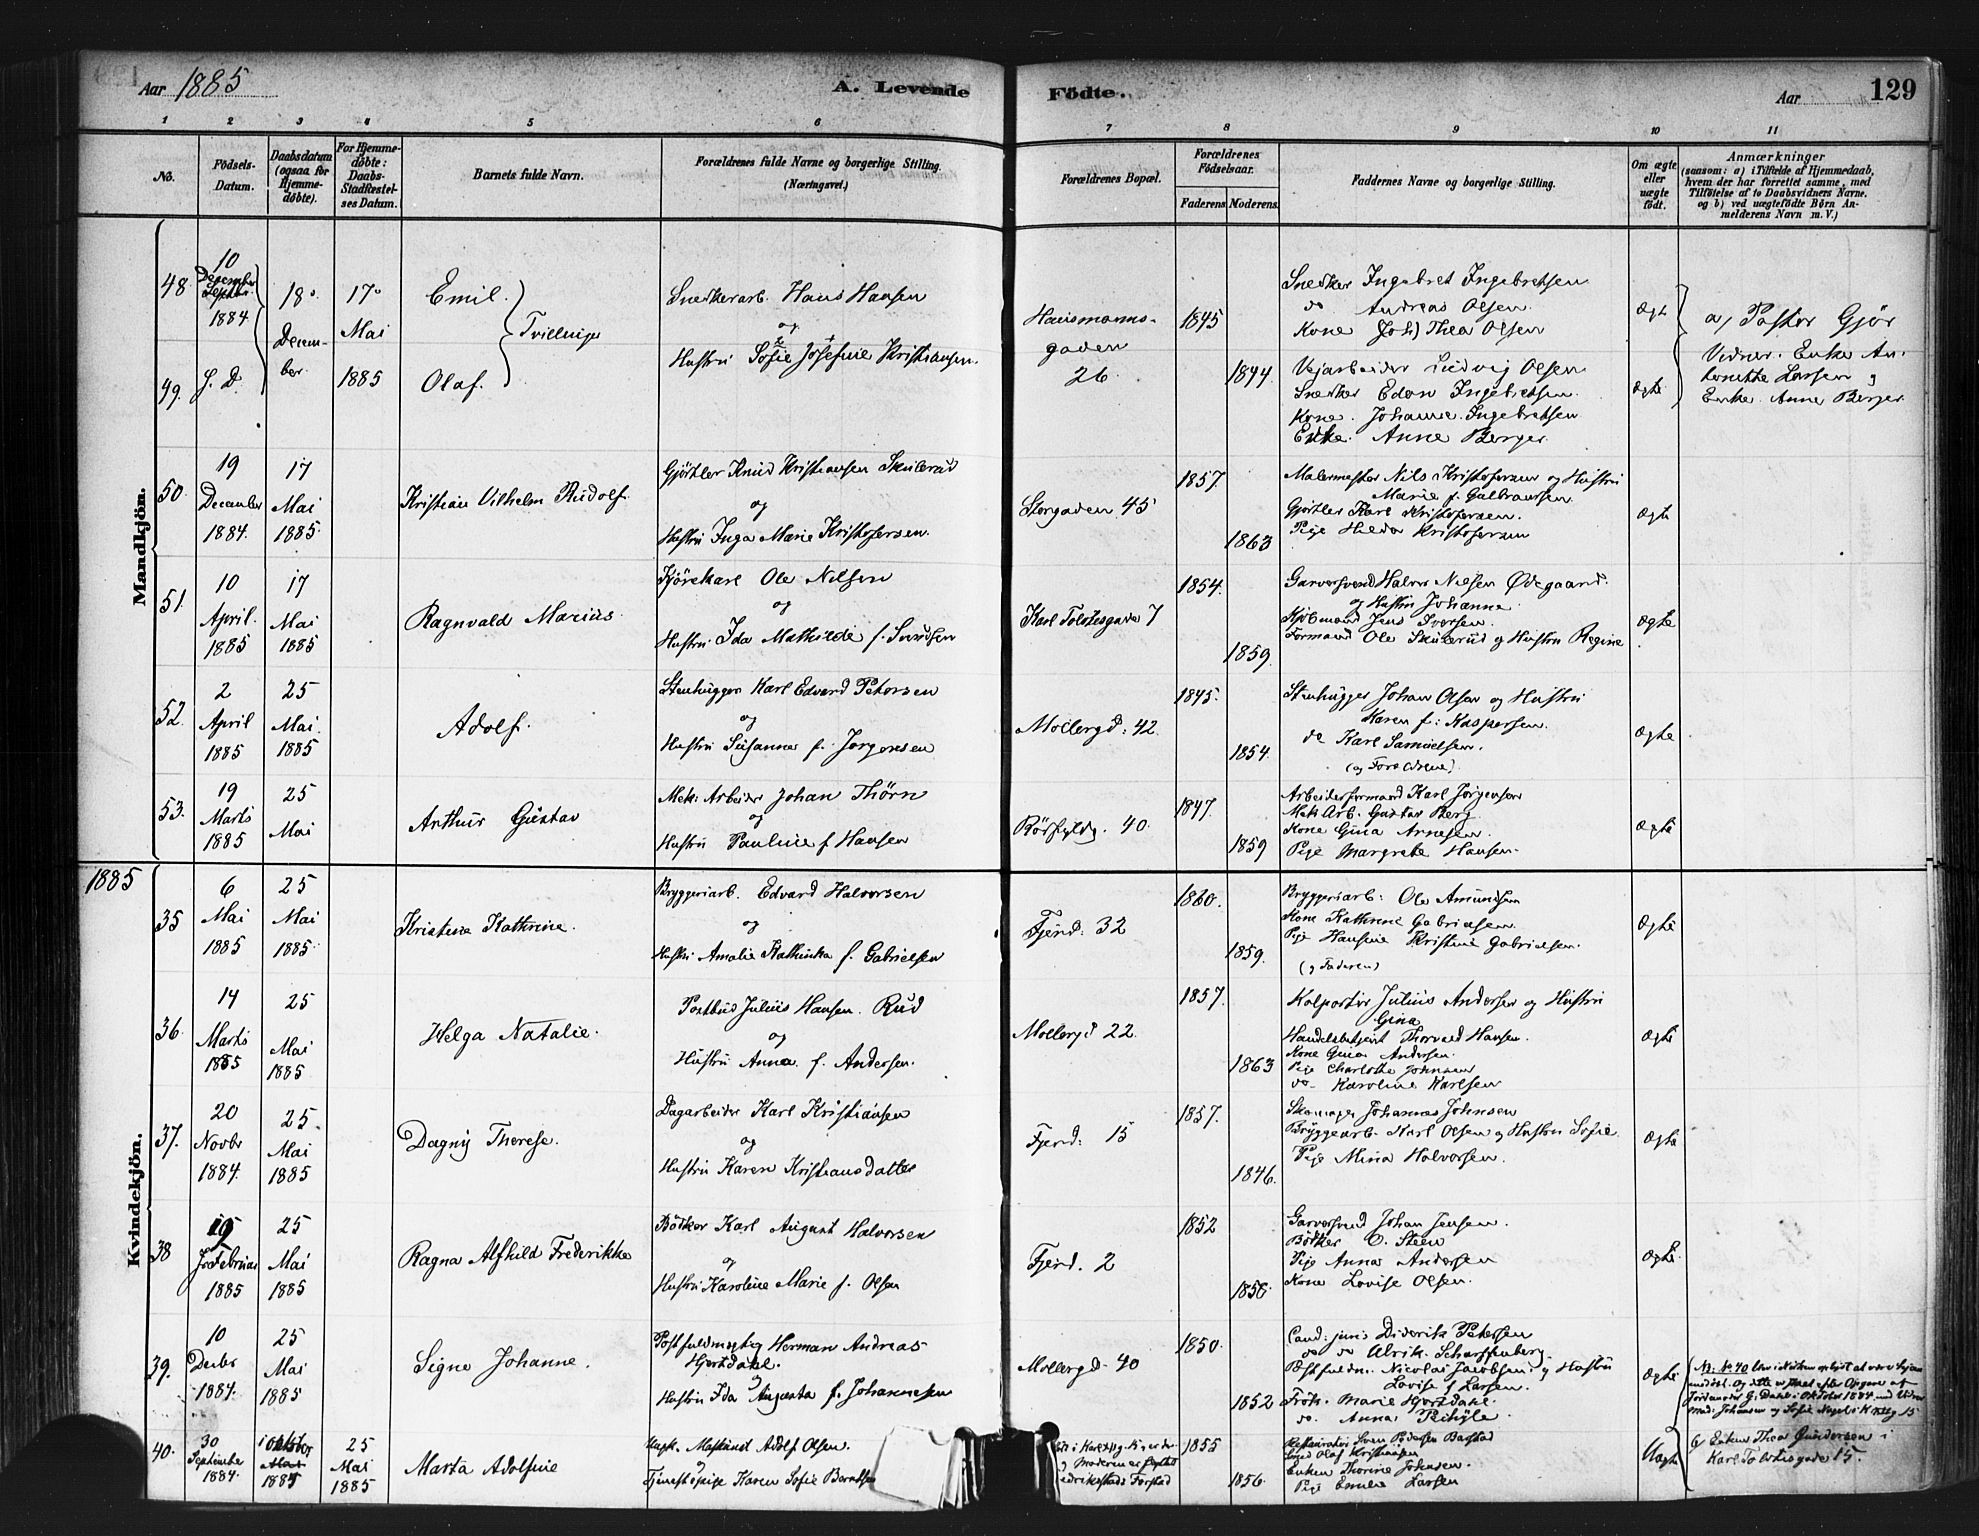 Aar 1885
A. Levende
Födte.
Aar
129
1 2 3 4 5 6 7 8 9 10 11
No.
Födsels-Datum.
Daabsdatum (ogsaa for Hjemme-döbte).
For Hjemme-döbte: Daabs-Stadfæstel-ses Datum.
Barnets fulde Navn.
Forældrenes fulde Navne og borgerlige Stilling.
(Næringsvei.)
Forældrenes Bopæl.
Forældrenes Födselsaar.
Faderens.
Moderens.
Faddernes Navne og borgerlige Stilling.
Om ægte eller uægte födt.
Anmærkninger
(saasom: a) i Tilfælde af Hjemmedaab,
hvem der har forrettet samme, med
Tilföielse af to Daabsvidners Navne.
og b) ved uægtefödte Börn An-
melderens Navn m. V.)
Mandkjön.
48.
10
December
1884
18.
Decem-
ber
17.
Mai
1885
Emil.
Tvillinge
Snedkerarb. Hans Hansen
og
Hustru Sofie Josefine Kristiansen
Hausmanns-
gaden
26
1845
1844
Snedker Ingebret Ingebretsen
do Andreas Olsen
Kone Joh) Thea Olsen
Ægte
a, Pastor Gjör
Vidner. Enke An-
tonette Larsen og
Enke Anne Berger
49.
S. D.
Olaf.
Vejarbeider Ludvig Olsen
Snedker Edon Ingebretsen.
Kone. Johanne Ingebretsen
Enke. Anne Berger.
Ægte
50.
19
December
1884.
17
Mai
1885.
Kristian Vilhelm Rudolf.
Gjörtler Knud Kristiansen Skulerud
og
Hustru Inga Marie Kristofersen.
Storgaden 45
1857.
1863
Malermester Nils Kristofersen og Hustru
Marie f. Gulbransen
Gjörtler Karl Kristofersen.
Pige Hilda Kristofersen
Ægte
51.
10
April.
1885
17
Mai
1885
Ragnvald Marius.
Kjörekarl Ole Nilsen
og
Hustru Ida Mathilde f. Svendsen
Karl Tolstesgade 7
1854.
1859.
Garversvend Halvor Nilsen Ødegaard.
og Hustru Johanne.
Kjöbmand Jens Iversen.
Formand Ole Skulerud og Hustru Regine
Ægte
52.
2
April
1885
25
Mai.
1885
Adolf.
Stenhugger Karl Edvard Petersen
og
Hustru Susanne f. Jorgensen
Mollergd: 42.
1845.
1854.
Stenhugger Johan Olsen og Hustru
Karen f: Kaspersen.
do Karl Samuelsen.
(og Forældrene).
Ægte
53.
19
Marts
1885
25
Mai
Arthur Gustav
Mek: Arbeider Johan Thörn
og
Hustru Pauline f Hansen
Rörfyldg. 40.
1847.
1859
Arbeiderformand Karl Jorgensen
Mek Arb. Gustav Berg
Kone Gina Arnesen.
Pige Margrete Hansen.
Ægte
1885
Kvindekjön.
35
6
Mai
1885
25
Mai
1885.
Kristine Kathrine.
Bryggeriarb. Edvard Halvorsen
og
Hustru Amalie Kathinka f. Gabrielsen
Fjerd: 32
1860.
1859.
Bryggeriarb: Ole Amundsen
Kone Kathrine Gabrielsen
Pige Hansine Kristine Gabrielsen.
(og Faderen)
Ægte
36.
14
Marts
1885
25
Mai
1885
Helga Natalie.
Postbud Julius Hansen Rud
og
Hustru Anna f. Andersen.
Mollergd 22.
1857.
1863
Kolportör Julius Andersen og Hustru
Gina
Handelsbetjent Thorvald Hansen.
Kone Gina Andersen.
Pige Charlotte Johnsen
do. Karoline Karlsen
Ægte
37.
20
Novbr
1884.
25.
Mai
1885
Dagny Therese.
Dagarbeider Karl Kristiansen
og
Hustru Karen Kristiansdatter
Fjerd: 15
1857.
1846.
Skomager Johannes Johnsen
Bryggearb. Karl Olsen og Hustru Sofie.
Pige Mina Halvorsen.
Ægte
38
Februar
1885
25
Mai
1885
Ragna Alfhild Frederikke
Bödker Karl August Halvorsen
og
Hustru Karoline Marie f. Olsen
Fjerd. 2
1852
1856.
Garversvend Johan Jensen.
Bödker O. Steen
Pige Anna Andersen
Kone Lovise Olsen.
Ægte
39.
10
Decbr
1884.
25
Mai
1885
Signe Johanne.
Postfuldmægtig Herman Andreas
Hjortdahl.
og
Hustru Ida Augusta f. Johannesen
Mollergd. 40
1850.
1852
Cand: juris Diderik Petersen
do do Ulrik Scharffenberg.
Postfuldm. Nicolai Jacobsen og Hustru
Lovise f Larsen.
Frök. Marie Hjortdahl.
do. Anna
Ægte
40.
30
September
1884.
1885
25
Mai
1885
Marta Adolfine
Ungk. Maskinist Adolf Olsen.
og
Tjenestepige Karen Sofie Berntsen
1855
1856.
Restauratör Sven Pedersen Bastad
Svend Olaf Kristiansen
Enken Thorine Johnsen.
Pige Emilie Larsen
Uægte
b, Enken Thea Gundersen i
Karl Tolstesgade 15.